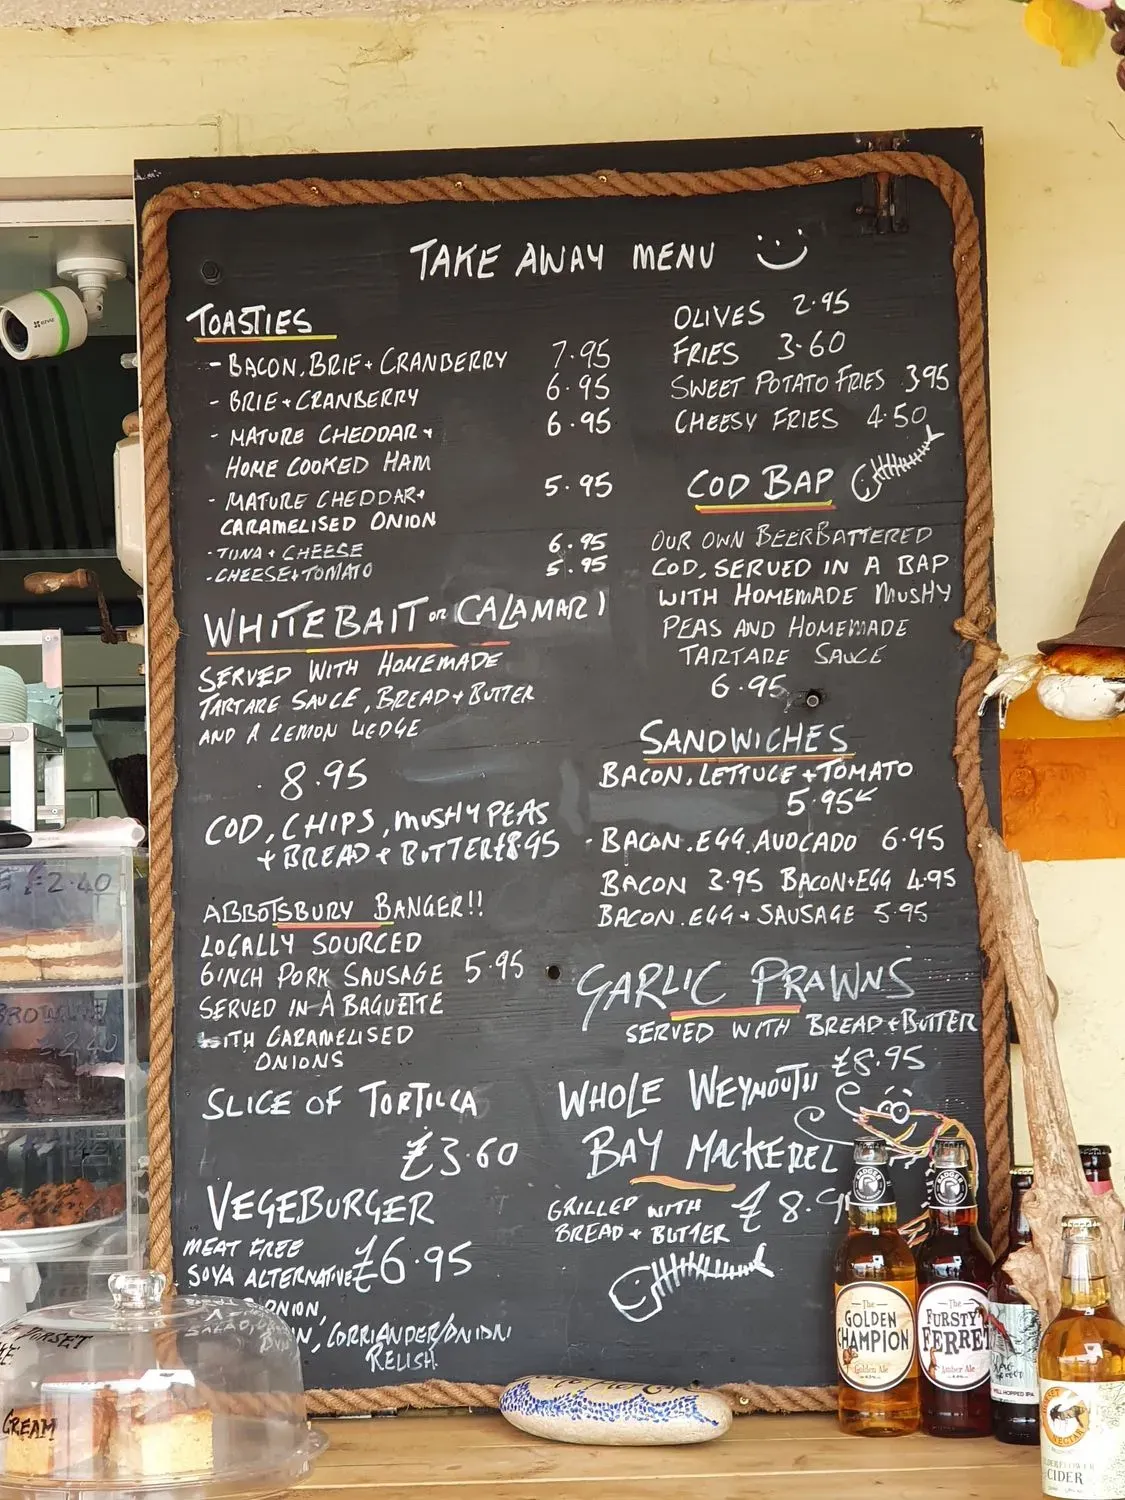 TAKE AWAY MENU
TOASTIES
- BACON, BRIE + CRANBERRY 7.95
- BRIE + CRANBERRY 6.95
- MATURE CHEDDAR + 6.95
HOME COOKED HAM
- MATURE CHEDDAR + 5.95
CARAMELISED ONION
- TUNA + CHEESE 6.95
- CHEESE + TOMATO 5.95
WHITEBAIT OR CALAMARI
SERVED WITH HOMEMADE
TARTARE SAUCE, BREAD + BUTTER
AND A LEMON WEDGE
8.95
COD, CHIPS, MUSHY PEAS
+ BREAD + BUTTER £8.95
ABBOTSBURY BANGER!!
LOCALLY SOURCED
6INCH PORK SAUSAGE 5.95
SERVED IN A BAGUETTE
WITH CARAMELISED
ONIONS
SLICE OF TORTILLA
£3.60
VEGEBURGER
MEAT FREE
SOYA ALTERNATIVE £6.95
ONION,
SALAD,
CORRIANDER/ONION
RELISH
OLIVES 2.95
FRIES 3.60
SWEET POTATO FRIES 3.95
CHEESY FRIES 4.50
COD BAP
OUR OWN BEERBATTERED
COD, SERVED IN A BAP
WITH HOMEMADE MUSHY
PEAS AND HOMEMADE
TARTARE SAUCE
6.95
SANDWICHES
BACON, LETTUCE + TOMATO
5.95
- BACON. EGG. AVOCADO 6.45
BACON 3.95 BACON + EGG 4.95
BACON. EGG + SAUSAGE 5.95
GARLIC PRAWNS
SERVED WITH BREAD + BUTTER
£8.95
WHOLE WEYMOUTH
BAY MACKEREL
GRILLED WITH £8.9
BREAD + BUTTER
EZVIZ
£2.40
2.40
DORSET
CREAM
BADGER
The
GOLDEN
CHAMPION
Golden Ale
BADGER
The
FURSTY
FERRET
Amber Ale
WELL HOPPED IPA
NECTAR
ELDERFLOWER
CIDER